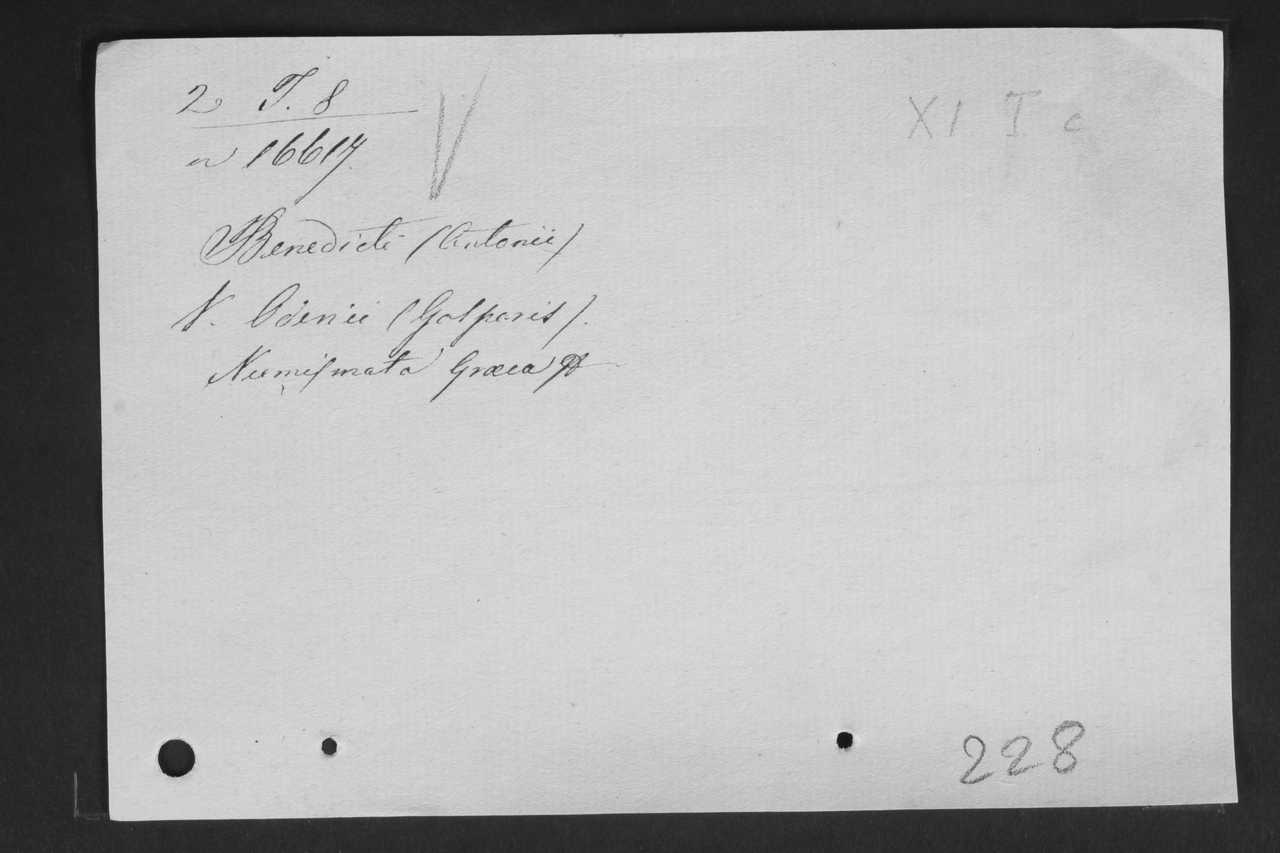 2 T. 8
XI I c
16617.
Benedicti (Antonii)
V. Oderici (Gasparis).
Numismata Græca
228